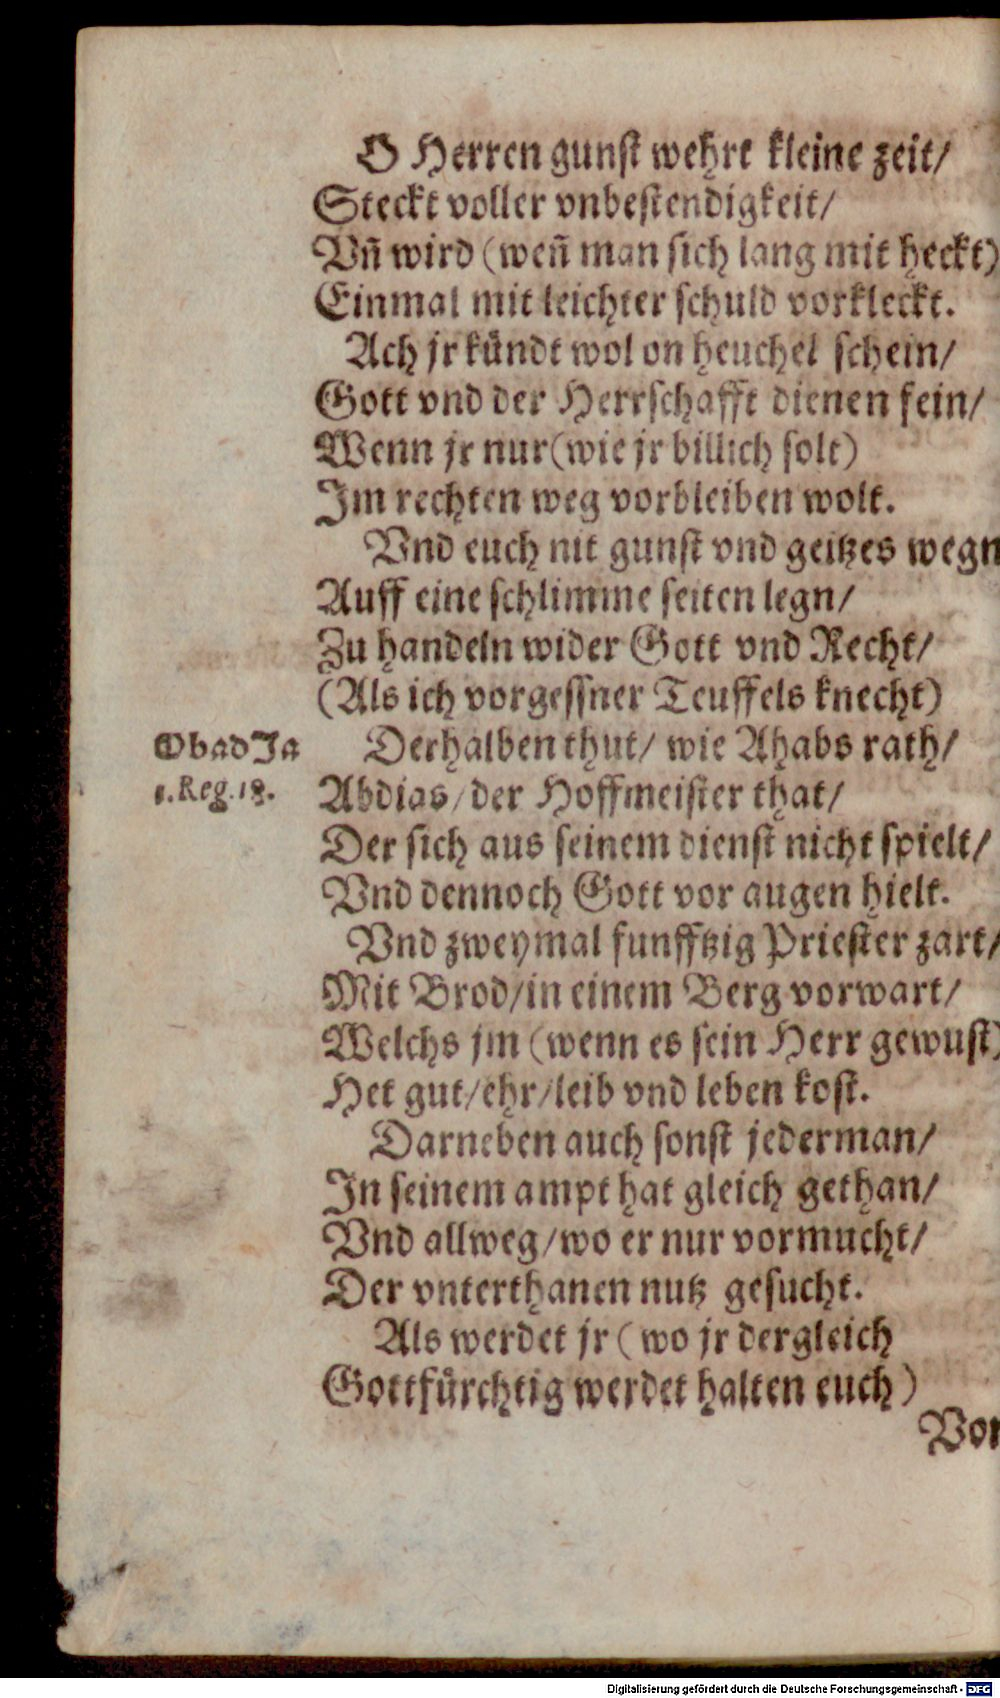 O Herren gunst wehrt kleine zeit/
Steckt voller vnbestendigkeit/
Vñ wird (weñ man sich lang mit heckt)
Einmal mit leichter schuld vorkleckt.
Ach jr kündt wol on heuchel schein/
Gott vnd der Herrschafft dienen fein/
Wenn jr nur (wie jr billich solt)
Im rechten weg vorbleiben wolt.
Vnd euch nit gunst vnd geitzes wegn
Auff eine schlimme seiten legn/
Zu handeln wider Gott vnd Recht/
(Als ich vorgessner Teuffels knecht)
ObadJa
1.Reg.18.
Derhalben thut/ wie Ahabs rath/
Abdias/der Hoffmeister that/
Der sich aus seinem dienst nicht spielt/
Vnd dennoch Gott vor augen hielt.
Vnd zweymal funfftzig Priester zart/
Mit Brod/in einem Berg vorwart/
Welchs jm (wenn es sein Herr gewust)
Het gut/ehr/leib vnd leben kost.
Darneben auch sonst jederman/
In seinem ampt hat gleich gethan/
Vnd allweg/wo er nur vormucht/
Der vnterthanen nutz gesucht.
Als werdet jr (wo jr dergleich
Gottfürchtig werdet halten euch)
Vor
Digitalisierung gefördert durch die Deutsche Forschungsgemeinschaft - DFG